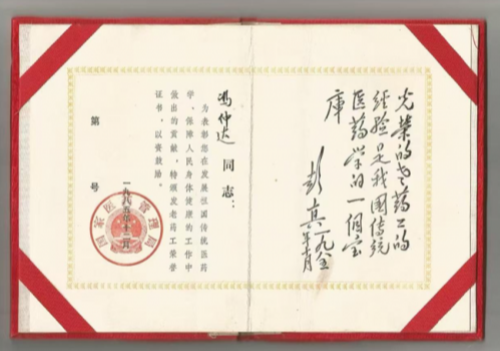 光荣的老药工的
经验是我國传统
医药学的一個宝
库
彭真
冯仲达同志：
为表彰您在发展祖国传统医药
学、保障人民身体健康的工作中
做出的贡献，特颁发老药工荣誉
证书，以资鼓励。
第 号
国家医药管理局